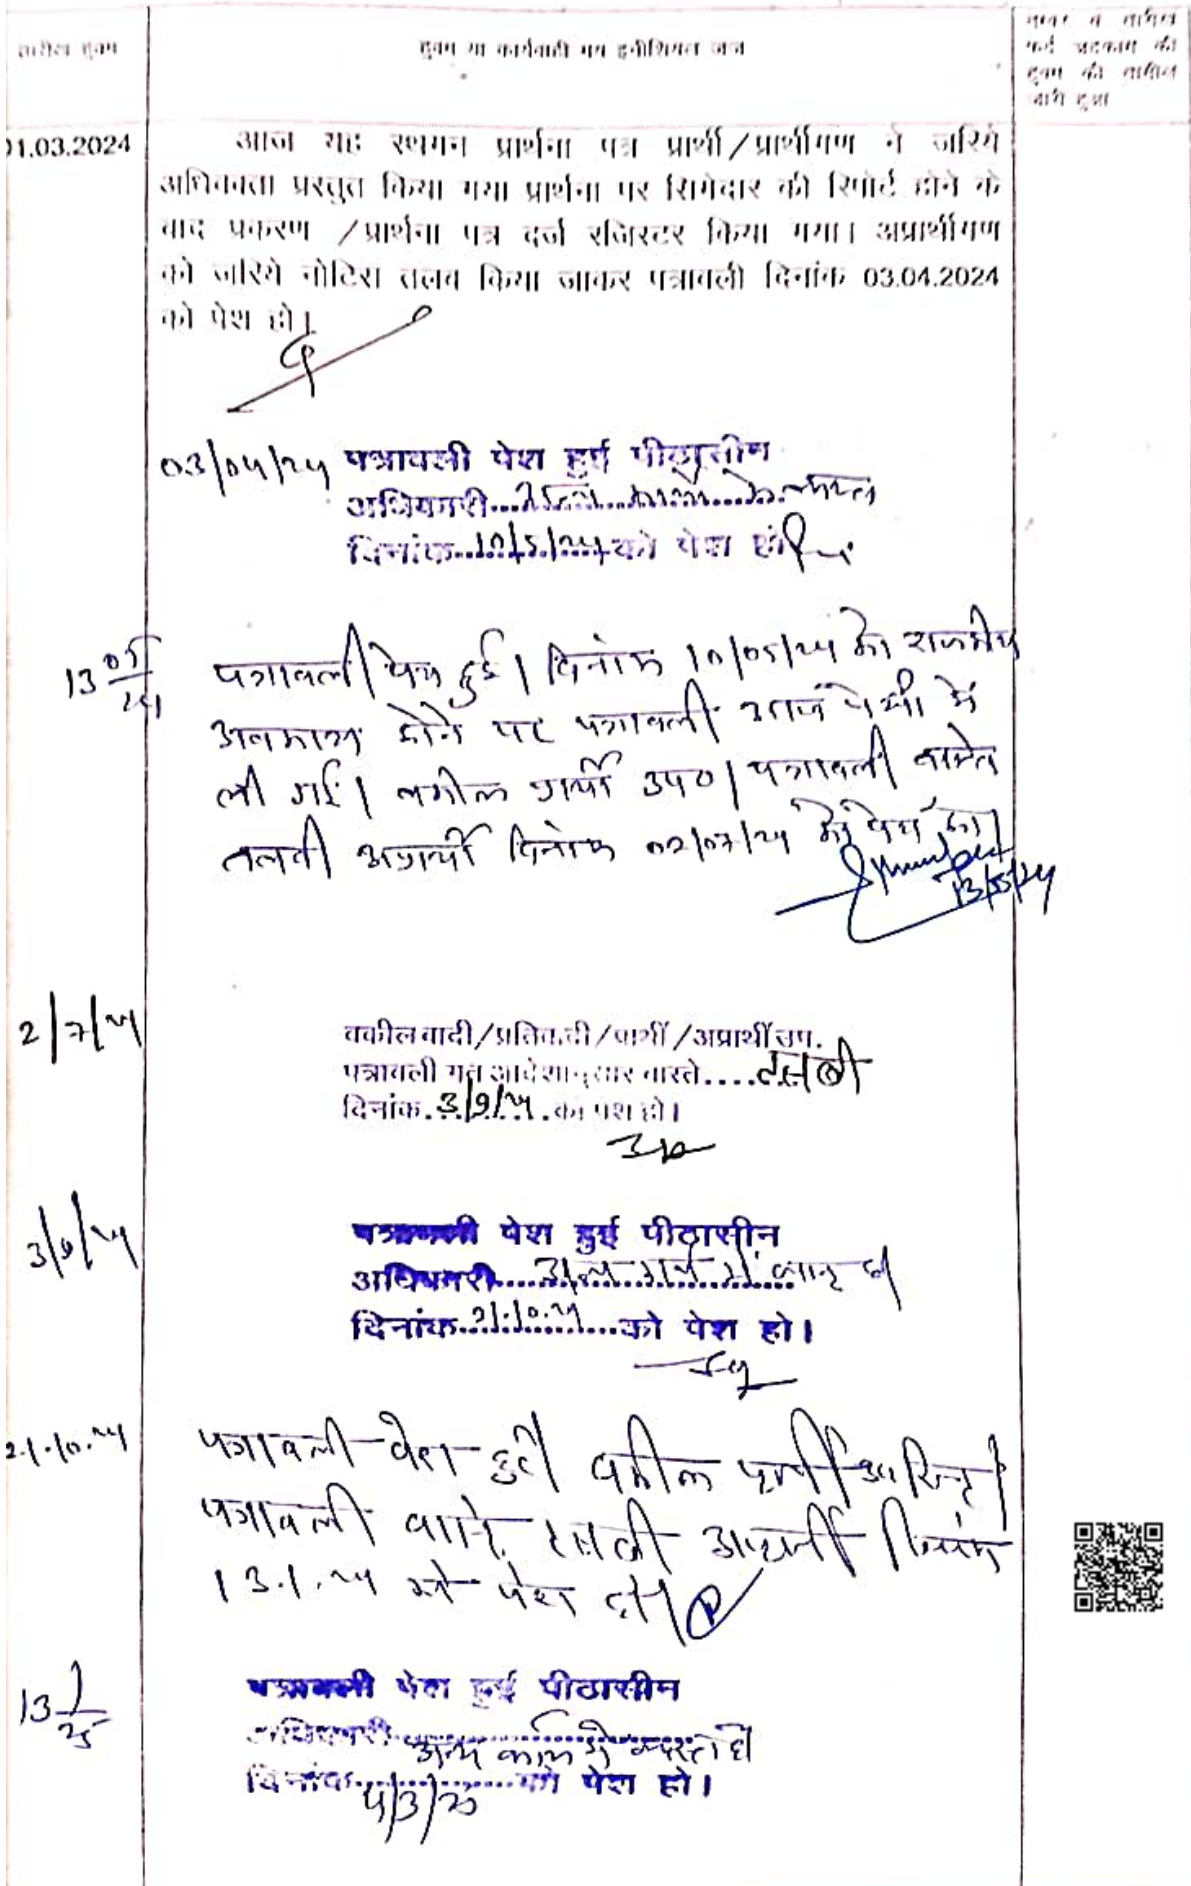 तारीख हुक्म
हुक्म या कार्यवाही मय इनीशियल जज
नम्बर व तारीख
फर्द अहकाम की
हुक्म की तामील
जारी हुआ
01.03.2024
आज यह स्थगन प्रार्थना पत्र प्रार्थी/प्रार्थीगण ने जरिये
अधिवक्ता प्रस्तुत किया गया प्रार्थना पर सिगेदार की रिपोर्ट होने के
बाद प्रकरण /प्रार्थना पत्र दर्ज रजिस्टर किया गया। अप्रार्थीगण
को जरिये नोटिस तलब किया जाकर पत्रावली दिनांक 03.04.2024
को पेश हो।
03/04/24 पत्रावली पेश हुई पीठासीन
अधिकारी
दिनांक 10/5/24 को पेश हो
13 05/24
पत्रावली पेश हुई। दिनांक 10/05/24 को राजकीय
अवकाश होने पर पत्रावली आज पेशी में
ली गई। वकील प्रार्थी उप०। पत्रावली वास्ते
तलबी अप्रार्थी दिनांक 02/07/24 को पेश हो।
13/05/24
2/7/24
वकील वादी/प्रतिवादी/प्रार्थी/अप्रार्थी उप.
पत्रावली गत आदेशानुसार वास्ते.... तलबी
दिनांक 3/9/24 को पेश हो।
3/9/24
पत्रावली पेश हुई पीठासीन
अधिकारी अन्य कार्य में व्यस्त है
दिनांक 21.10.24 को पेश हो।
21.10.24
पत्रावली पेश हुई वकील प्रार्थी
पत्रावली वास्ते तलबी अप्रार्थी दिनांक
13.1.25 को पेश हो।
13 1/25
पत्रावली पेश हुई पीठासीन
अधिकारी अन्य कार्य में व्यस्त है
दिनांक 4/3/25 को पेश हो।